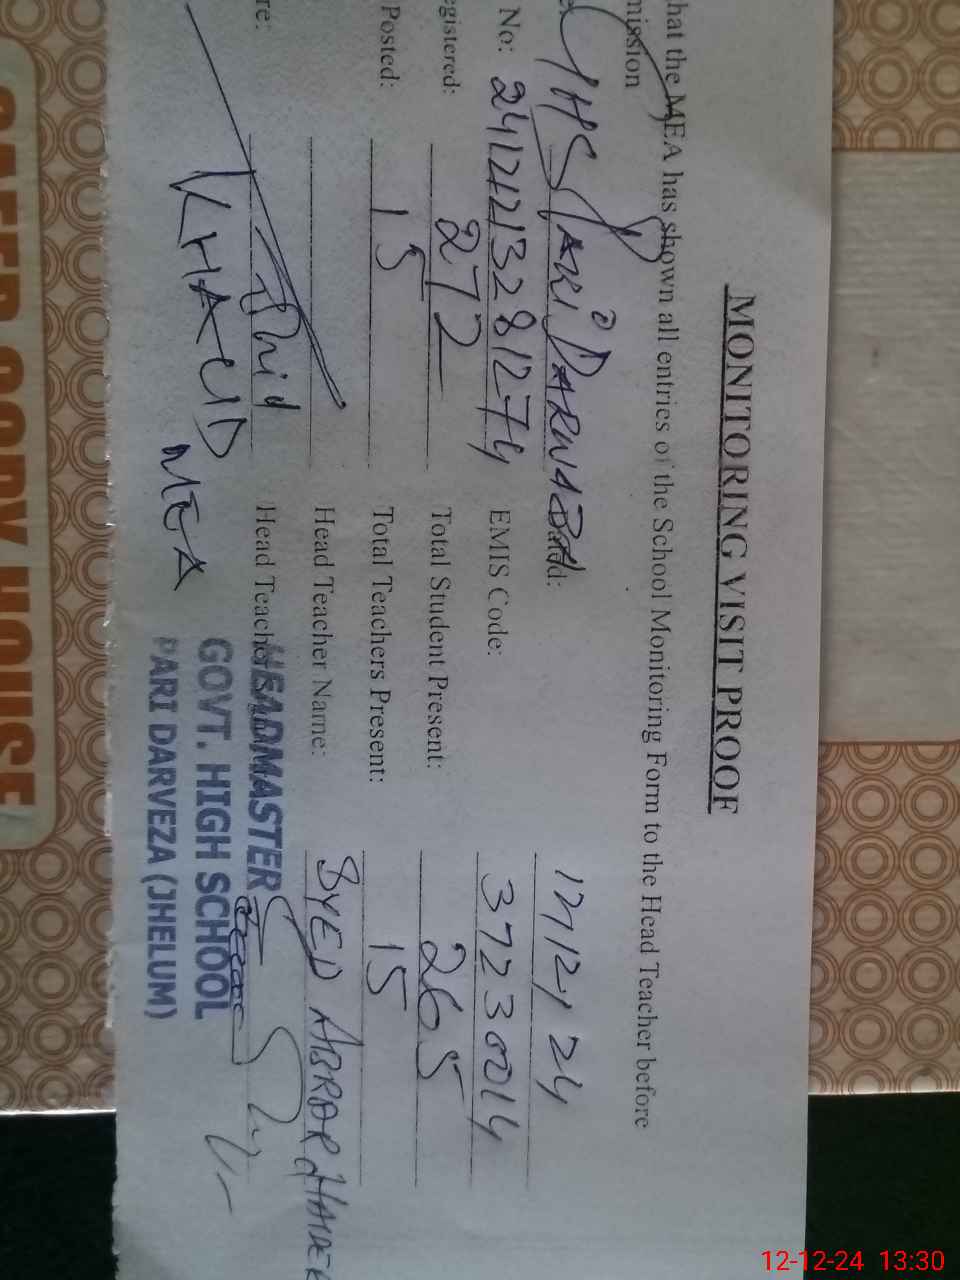 MONITORING VISIT PROOF
hat the MEA has shown all entries of the School Monitoring Form to the Head Teacher before
mission
GHS PARI DARWAZA 12/12/24
No: 2412121328 EMIS Code: 37230014
egistered: 272 Total Student Present: 265
Posted: 15 Total Teachers Present: 15
Head Teacher Name: SYED ABRAR HAIDER
re: Head Teacher
KHALID
MEA
HEADMASTER
GOVT. HIGH SCHOOL
PARI DARVEZA (JHELUM)
12-12-24 13:30